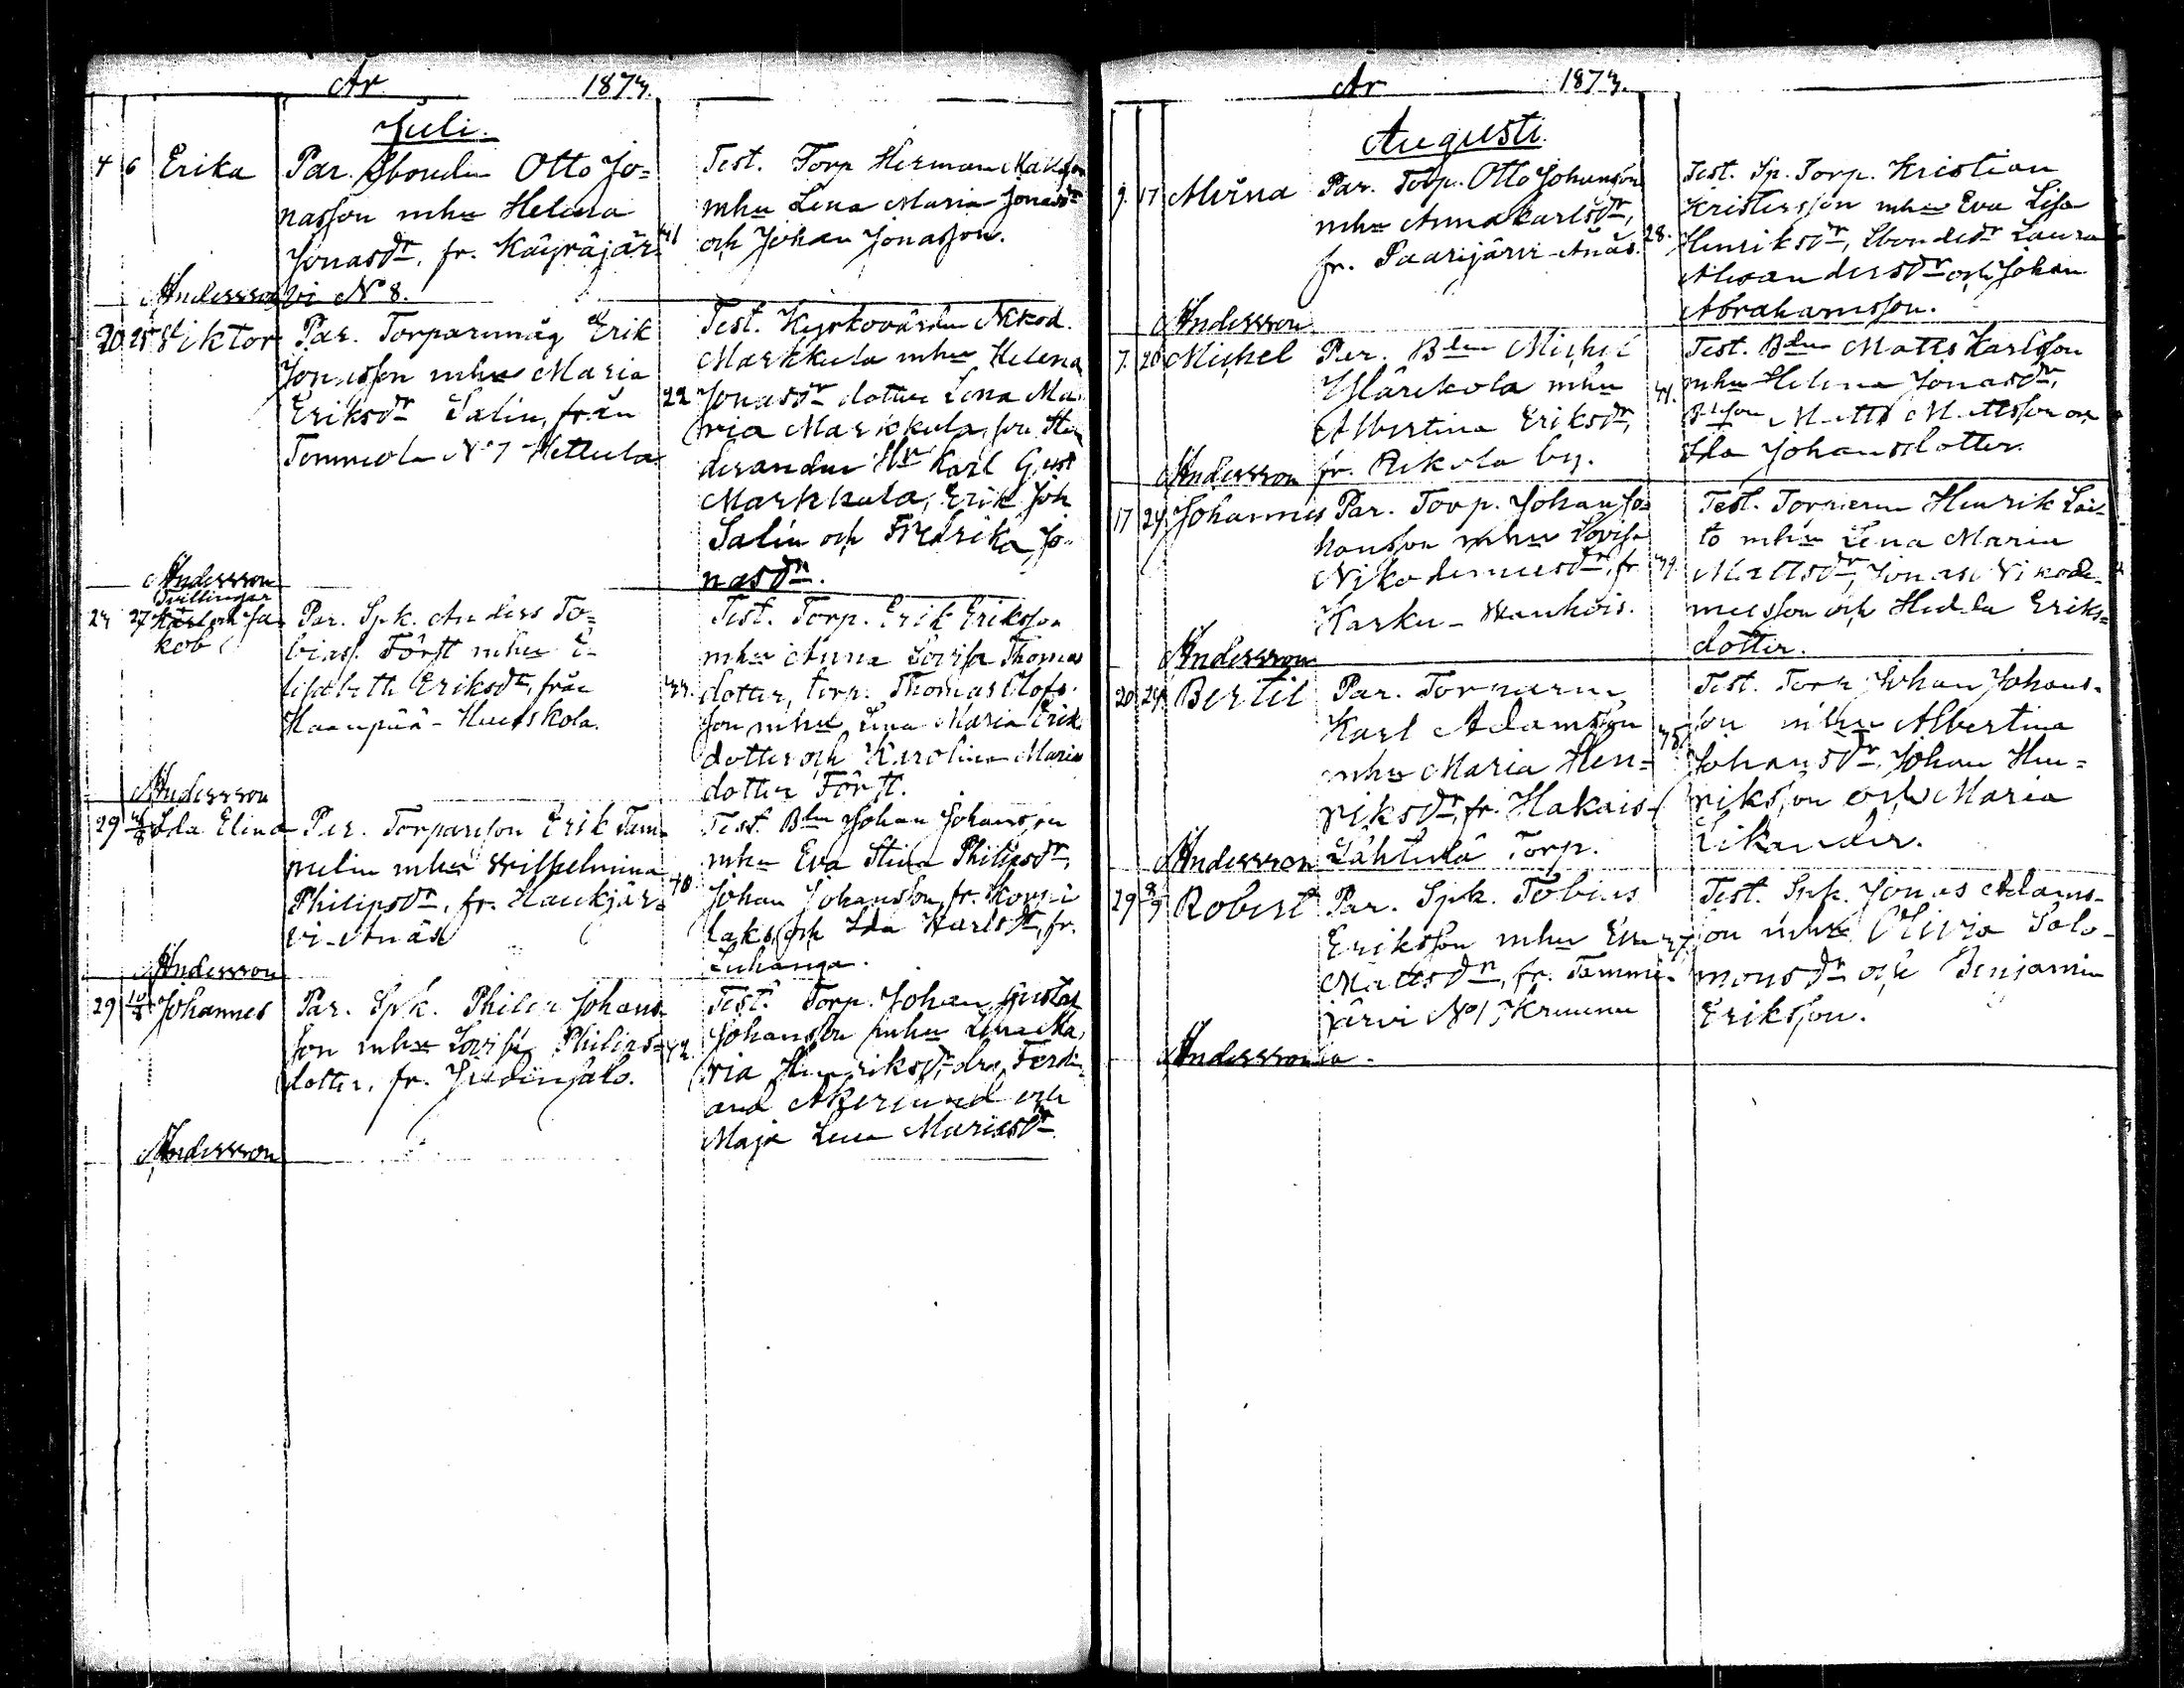 År 1873.
Juli.
4 6 Erika Par. Sbonden Otto Jo=
nasson mhu Helena
Jonasdr, fr. Käyräjär= 41
vi No 8.
Test. Torp Herman Mattsson
mhu Lena Maria Jonasdr
och Johan Jonasson.
Andersson
20 25 Viktor Par. Torparemåg Erik
Jonasson mhu Maria
Eriksdr Salin, från 22
Tommola No 7 Hettula
Test. Kyrkovärden Nikod.
Markkula mhu Helena
Jonasdr dotter Lena Ma
ria Markkula, stu
deranden Hr Karl Gust
Markkula, Erik Joh
Salin och Fredrika Jo
nasdr.
Andersson
Tvillingar
24 27 Karl och Ja
kob
Par. Spk. Anders To=
biass. Först mhu E-
lisabeth Eriksdr, från
Haanpää - Huiskola.
Test. Torp. Erik Eriksson
mhu Anna Lovisa Thomas
dotter, torp. Thomas Olofs
son mhu Lina Maria Erik
dotter och Karolina Maria
dotter Först.
Andersson
29 Ida Elina Par. Torparson Erik Tam
melin mhu Wilhelmina
Philipsdr, fr. Haukjär= 40
vi - Anäs
Test. Bdn Johan Johansson
mhu Eva Stina Philipsdr,
Johan Johansson, fr. Korpi
laks, och Ida Karlsdr, fr.
Luhanga.
Andersson
29 10/8 Johannes Par. Spk. Philip Johans
son mhu Lovisa Philips=
dotter, fr.
Test. Torp. Johan Gustaf
Johansson mhu Lina Ma
ria Henriksdr, drg Ferdin
and Åkerlund och
Maja Lena Mariasdr
Andersson
År 1873.
Augusti.
9. 17 Alvina Par. Torp. Otto Johansson
mhu Anna Karlsdr, 28.
fr. Paarijärvi - Anäs.
Test. Sp. Torp. Kristian
Kristersson mhu Eva Lisa
Henriksdr, Sbondedr Laura
Alexandersdr och Johan
Abrahamsson.
Andersson
7. 20 Michel Par. Bdn Michel
Yllärekola mhu
Albertina Eriksdr, 41.
fr. Rekola by.
Test. Bdn Matts Karlsson
mhu Helena Jonasdr,
Bdson Matts Mattsson och
Ida Johansdotter.
Andersson
17 24 Johannes Par. Torp. Johan Jo=
hansson mhu Lovisa
Nikodemusdr, fr 39.
Karku - Wanhois.
Test. Torparen Henrik Lai-
to mhu Lena Maria
Mattsdr, Jonas Nikode-
musson och Hedda Eriks=
dotter.
Andersson
20 24 Bertil Par. Torparen
Karl Adamsson
mhu Maria Hen=
riksdr, fr. Hakais-
Lähtelä Torp.
Test. Torp Johan Johans-
son mhu Albertina
Johansdr, Johan Hen=
riksson och Maria
Likander.
Andersson
29 8/9 Robert Par. Spk. Tobias
Eriksson mhu Eva 27.
Mattsdr, fr. Tammi-
järvi No 1, Kruunu
la.
Test. Spk. Jonas Adams-
son mhu Olivia Salo-
monsdr och Benjamin
Eriksson.
Andersson